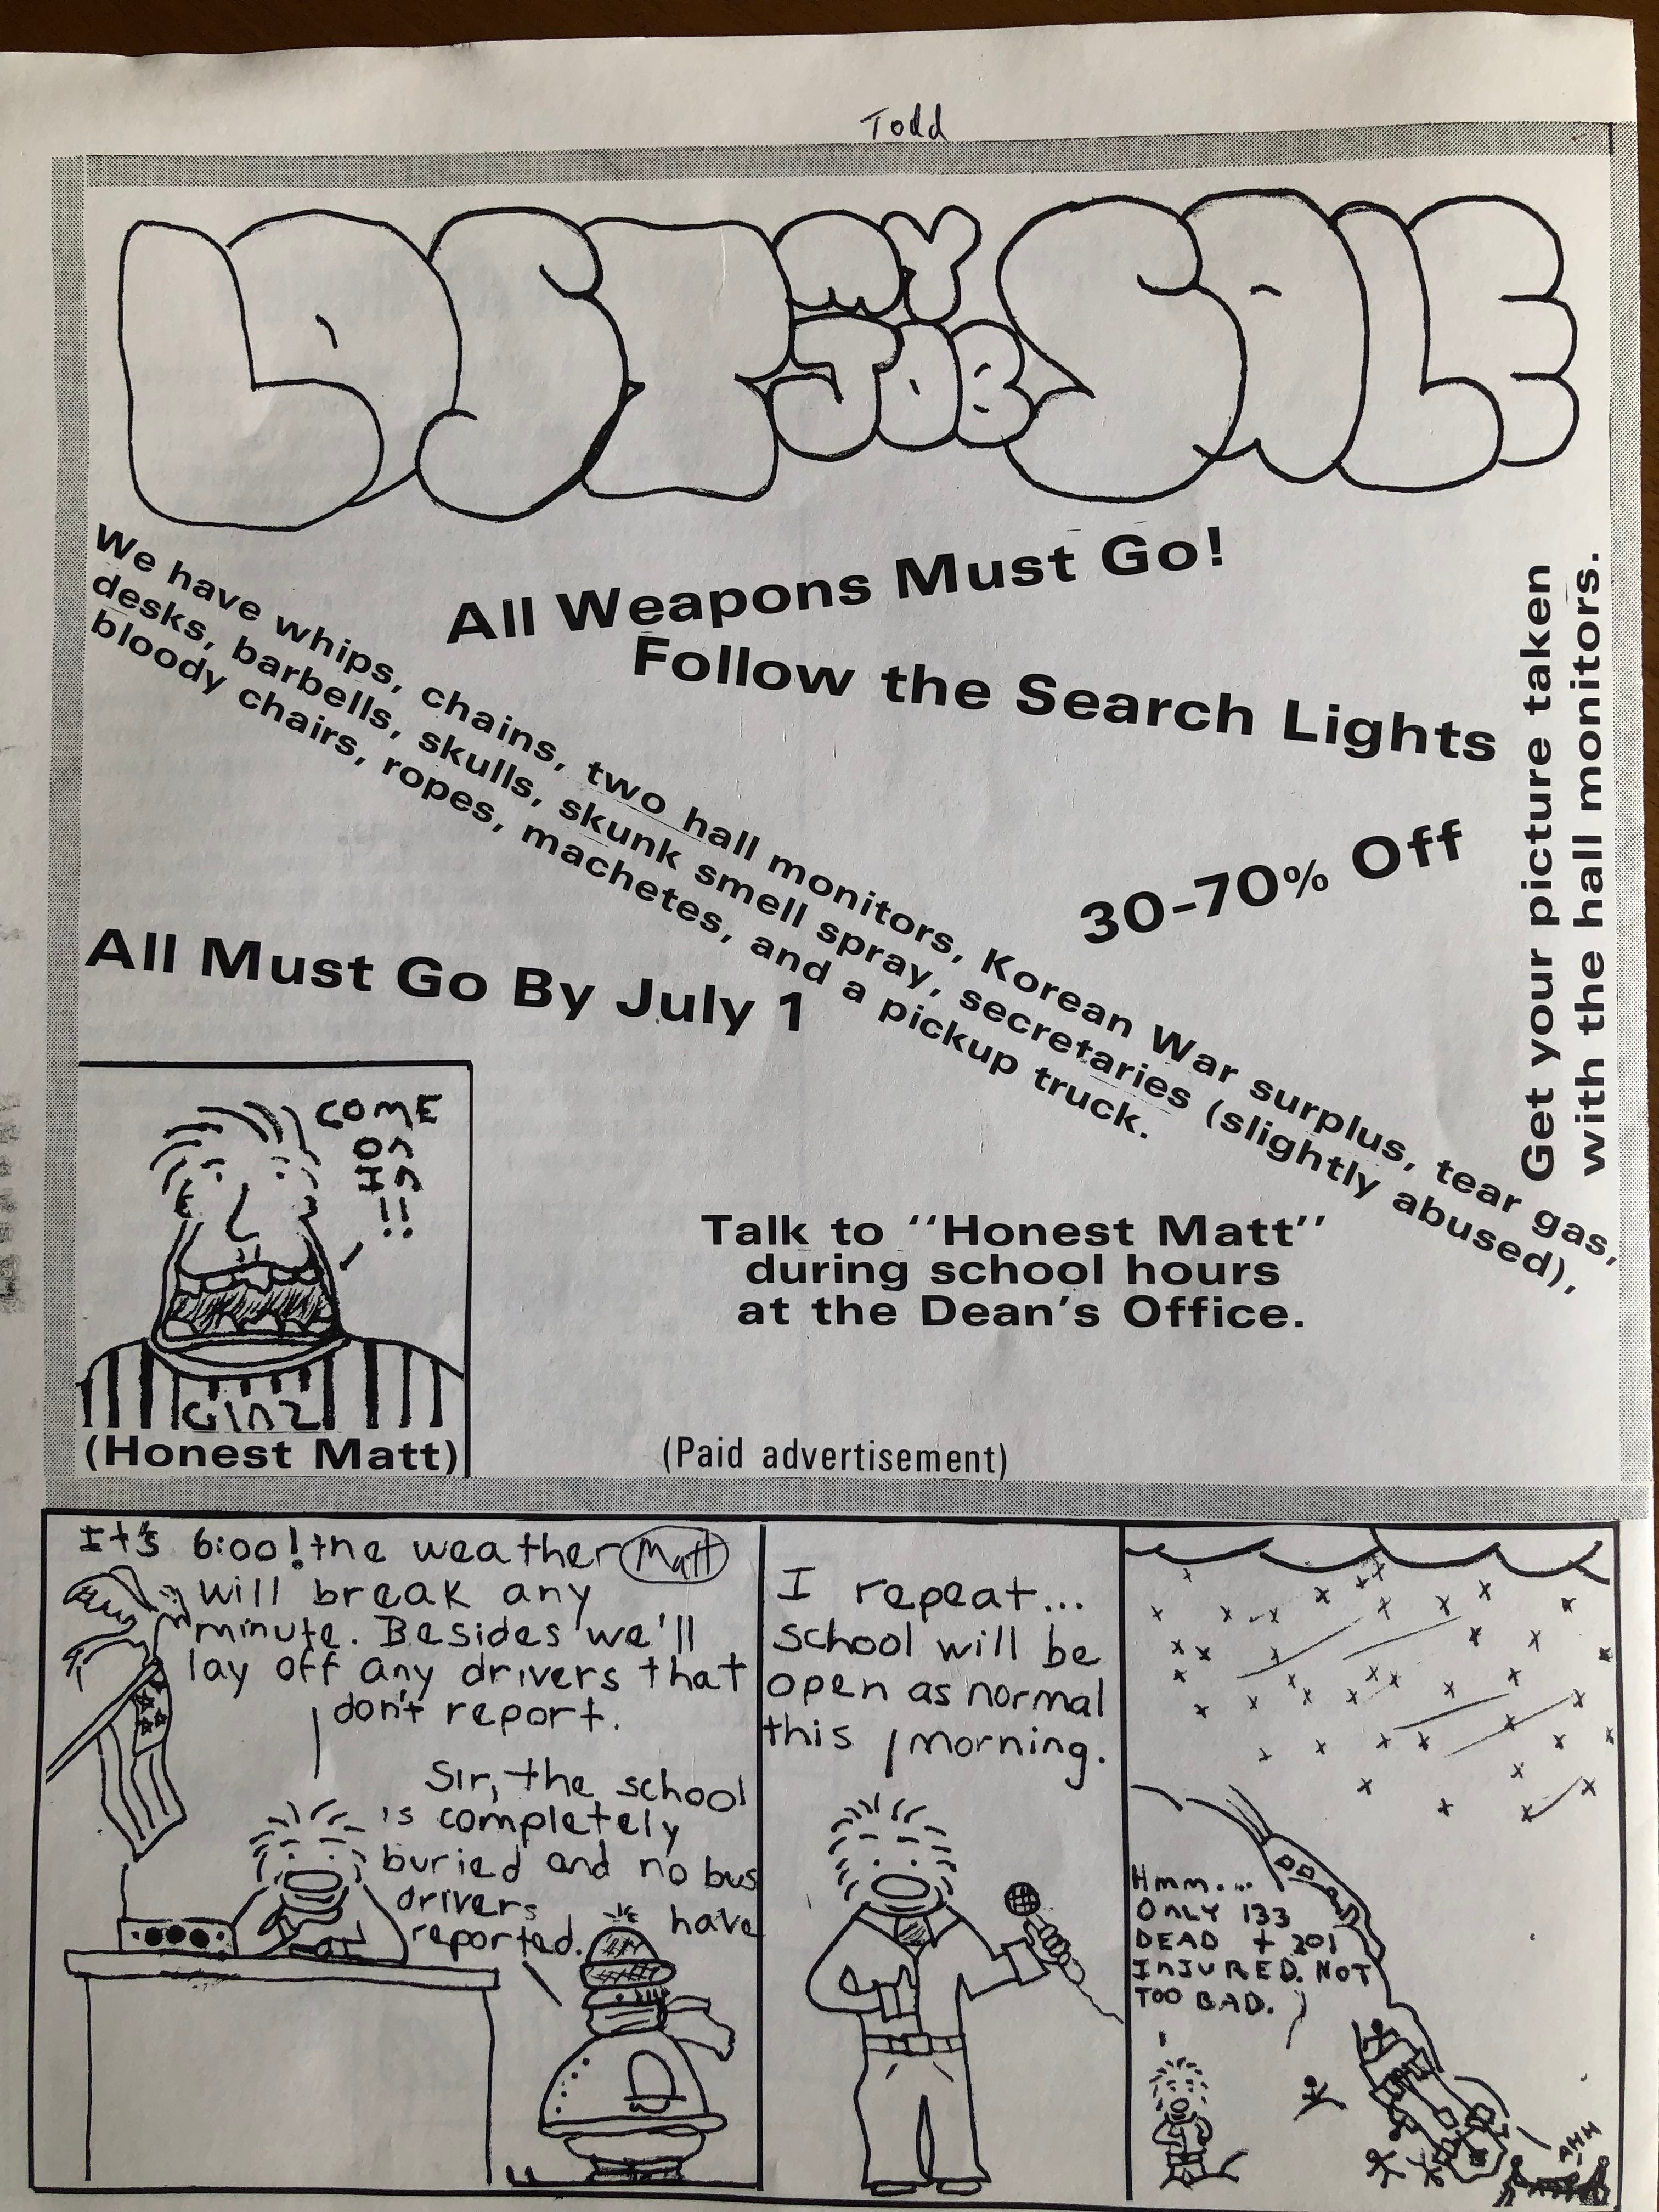 Todd
LOST MY JOB SALE
We have whips, chains, two hall monitors, Korean War surplus, tear gas,
desks, barbells, skulls, skunk smell spray, secretaries (slightly abused),
bloody chairs, ropes, machetes, and a pickup truck.
All Weapons Must Go!
Follow the Search Lights
30-70% Off
Get your picture taken
with the hall monitors.
All Must Go By July 1
COME
On
In
!!
(Honest Matt)
Talk to "Honest Matt"
during school hours
at the Dean's Office.
(Paid advertisement)
It's 6:00! the weather
Matt
will break any
minute. Besides we'll
lay off any drivers that
don't report.
Sir, the school
is completely
buried and no bus
drivers have
reported.
I repeat...
school will be
open as normal
this morning.
Hmm....
ONLY 133
DEAD + 201
INJURED. NOT
TOO BAD.
AHH